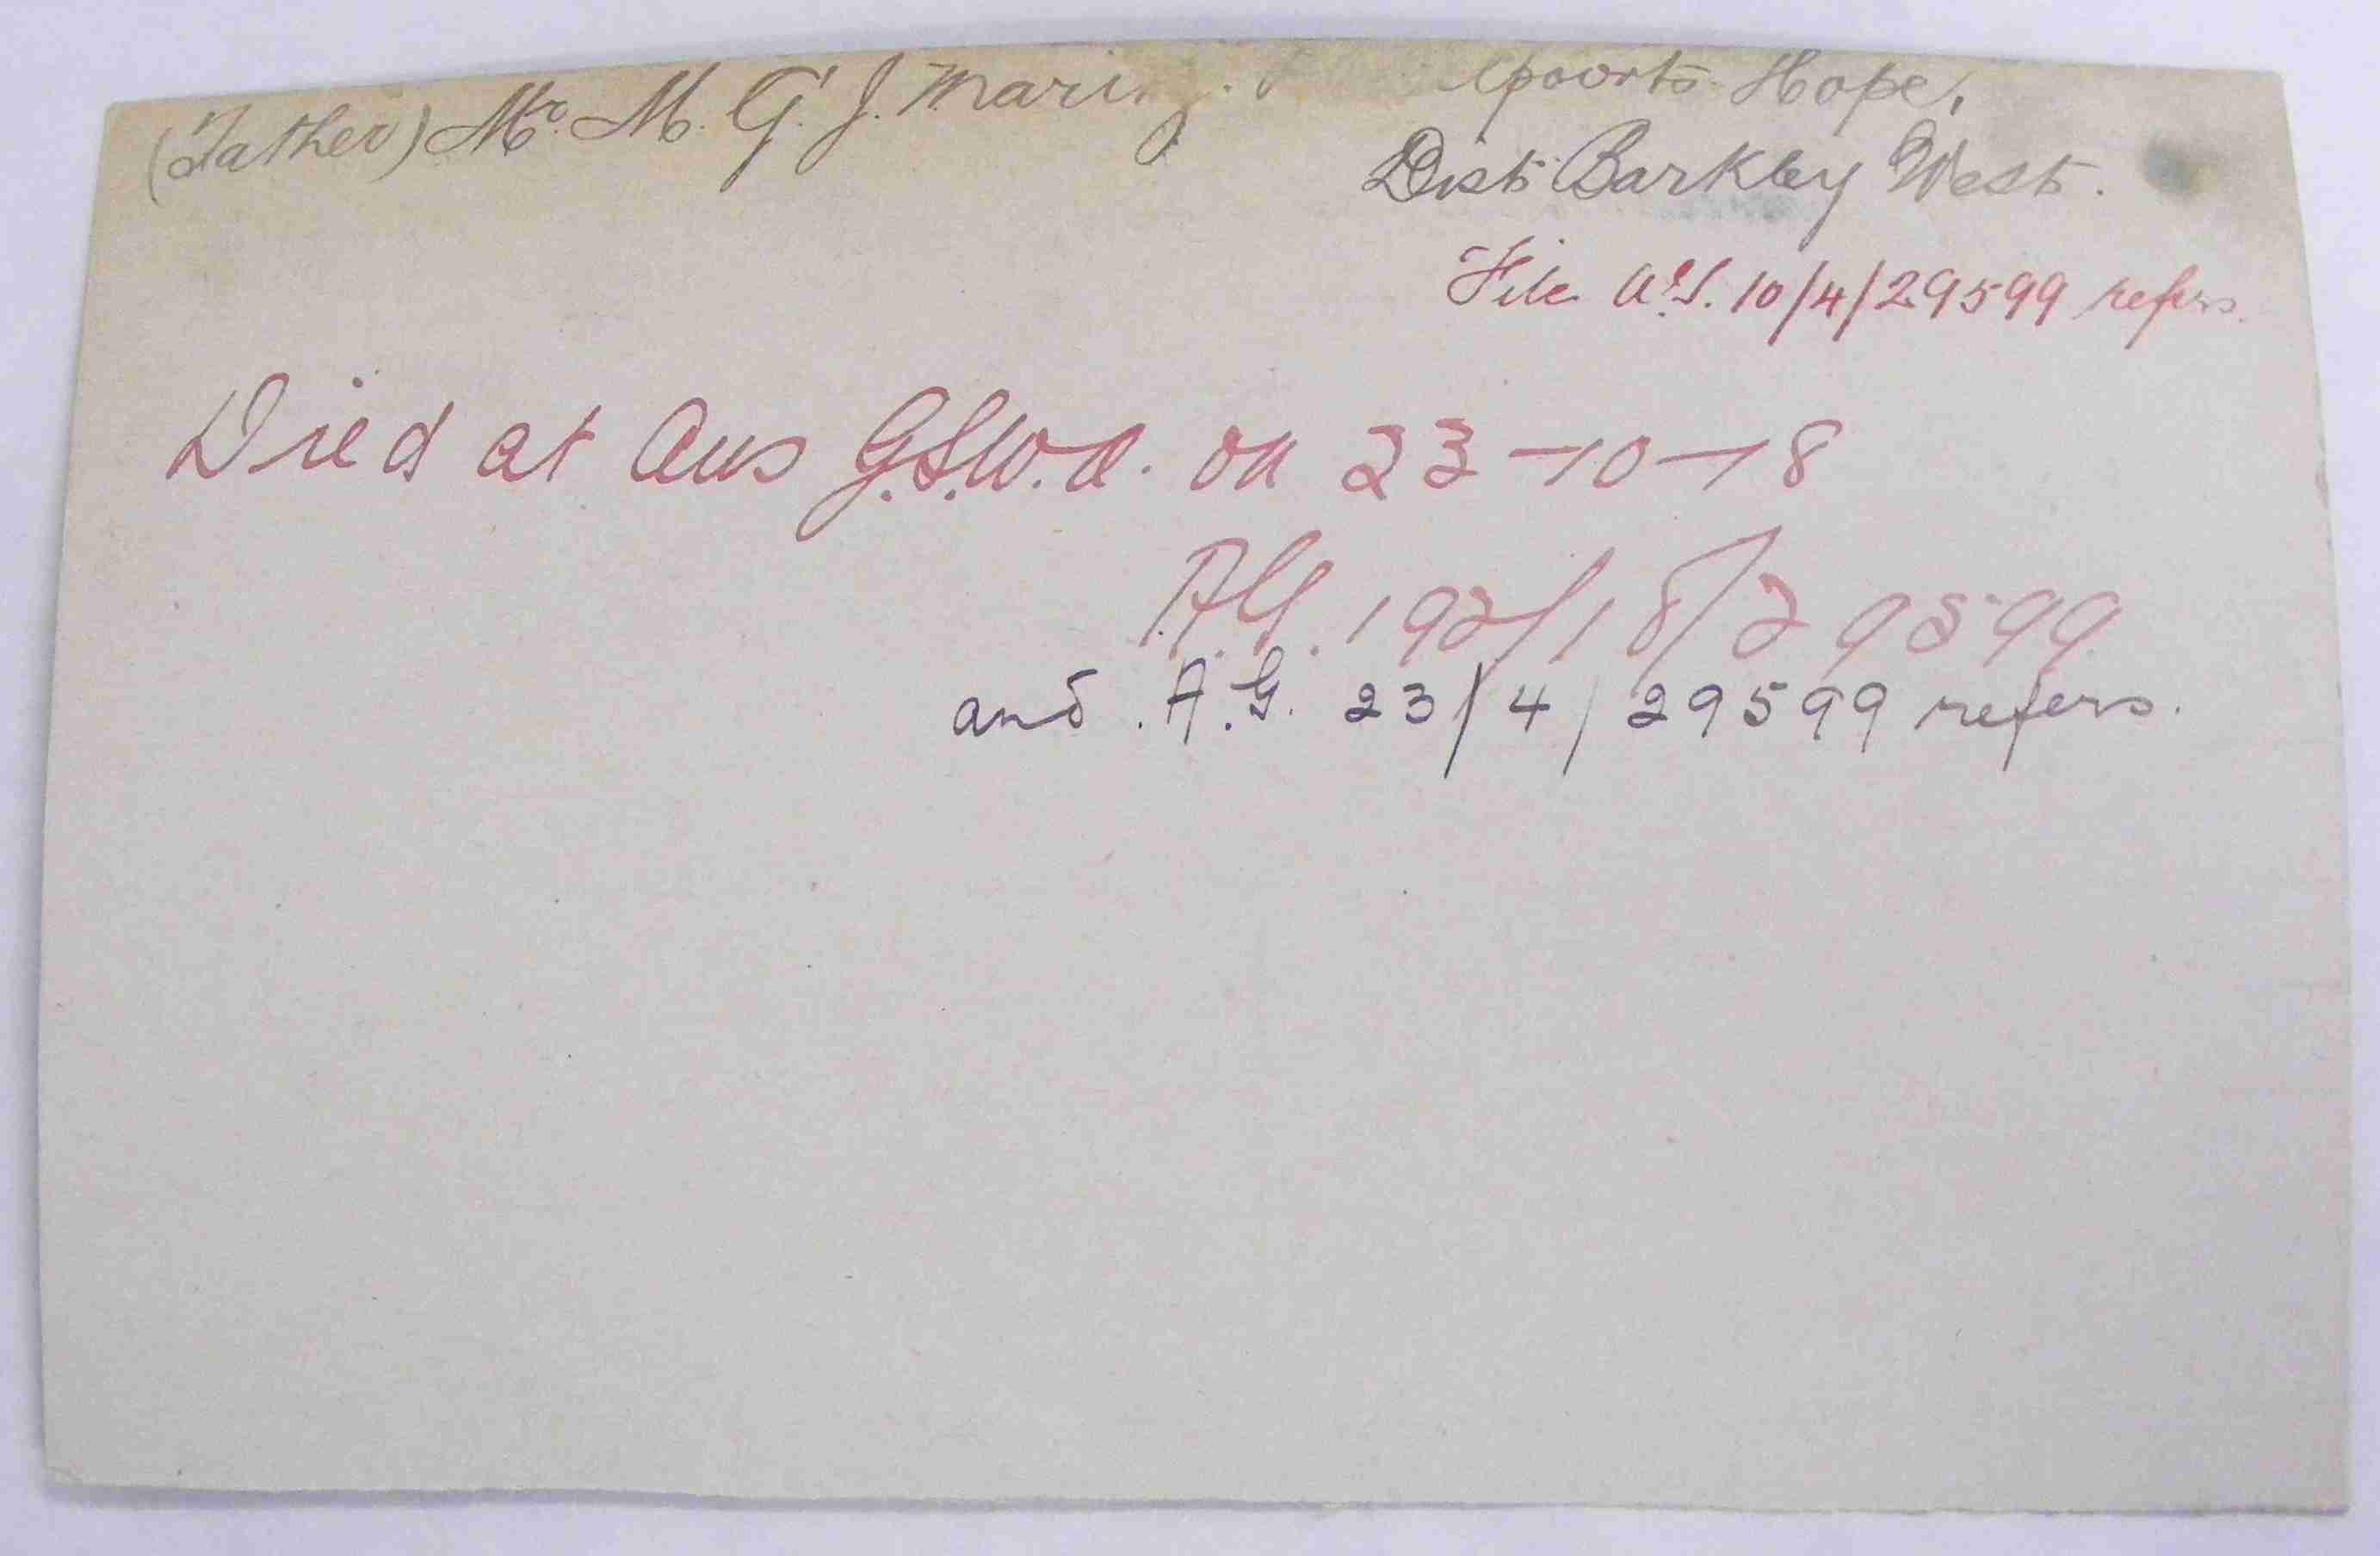 (Father) Mr. M. G. J. Hope,
Dist. Barkley West.
File 10/4/29599 refers.
Died at Aus G.S.W.A. on 23-10-18
A.G. 192/18/29599
and A.G. 23/4/29599 refers.